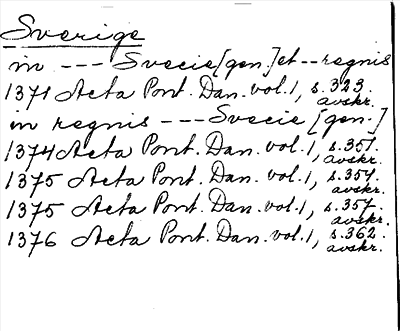 Sverige
in --- Svecie [gen.] et -- regnis
1371 Acta Pont. Dan. vol. 1, s. 323.
avskr.
in regnis --- Svecie [gen.]
1374 Acta Pont. Dan. vol. 1, s. 351.
avskr.
1375 Acta Pont. Dan. vol. 1, s. 354.
avskr.
1375 Acta Pont. Dan. vol. 1, s. 357.
avskr.
1376 Acta Pont. Dan. vol. 1, s. 362.
avskr.